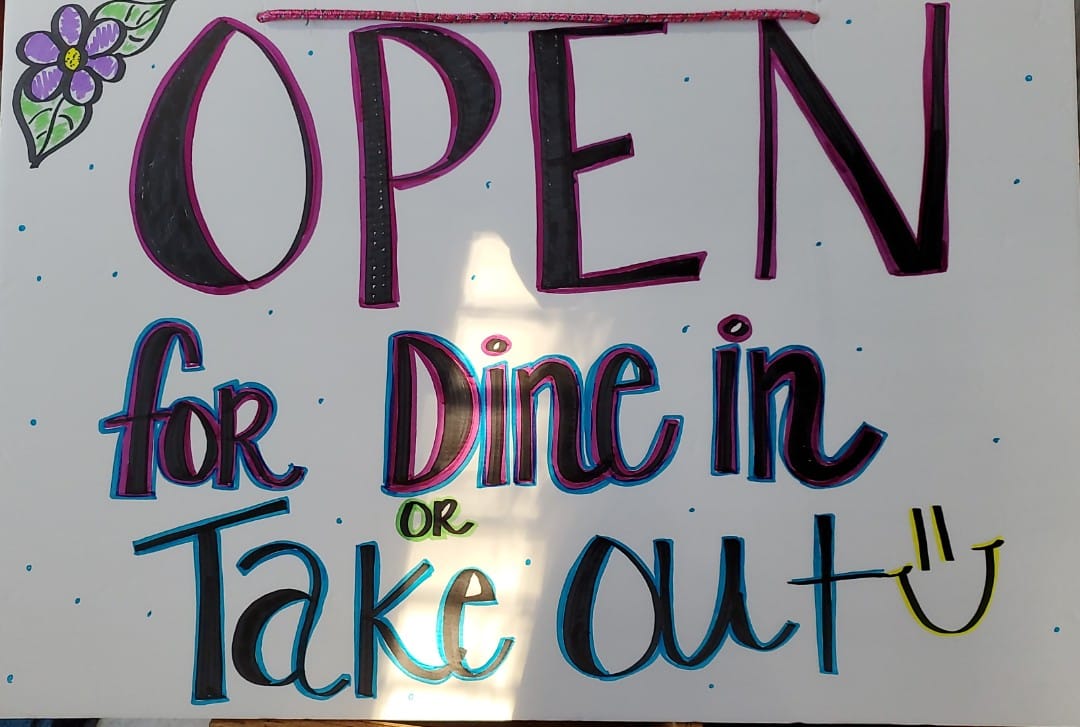 OPEN
for Dine in
OR
Take out